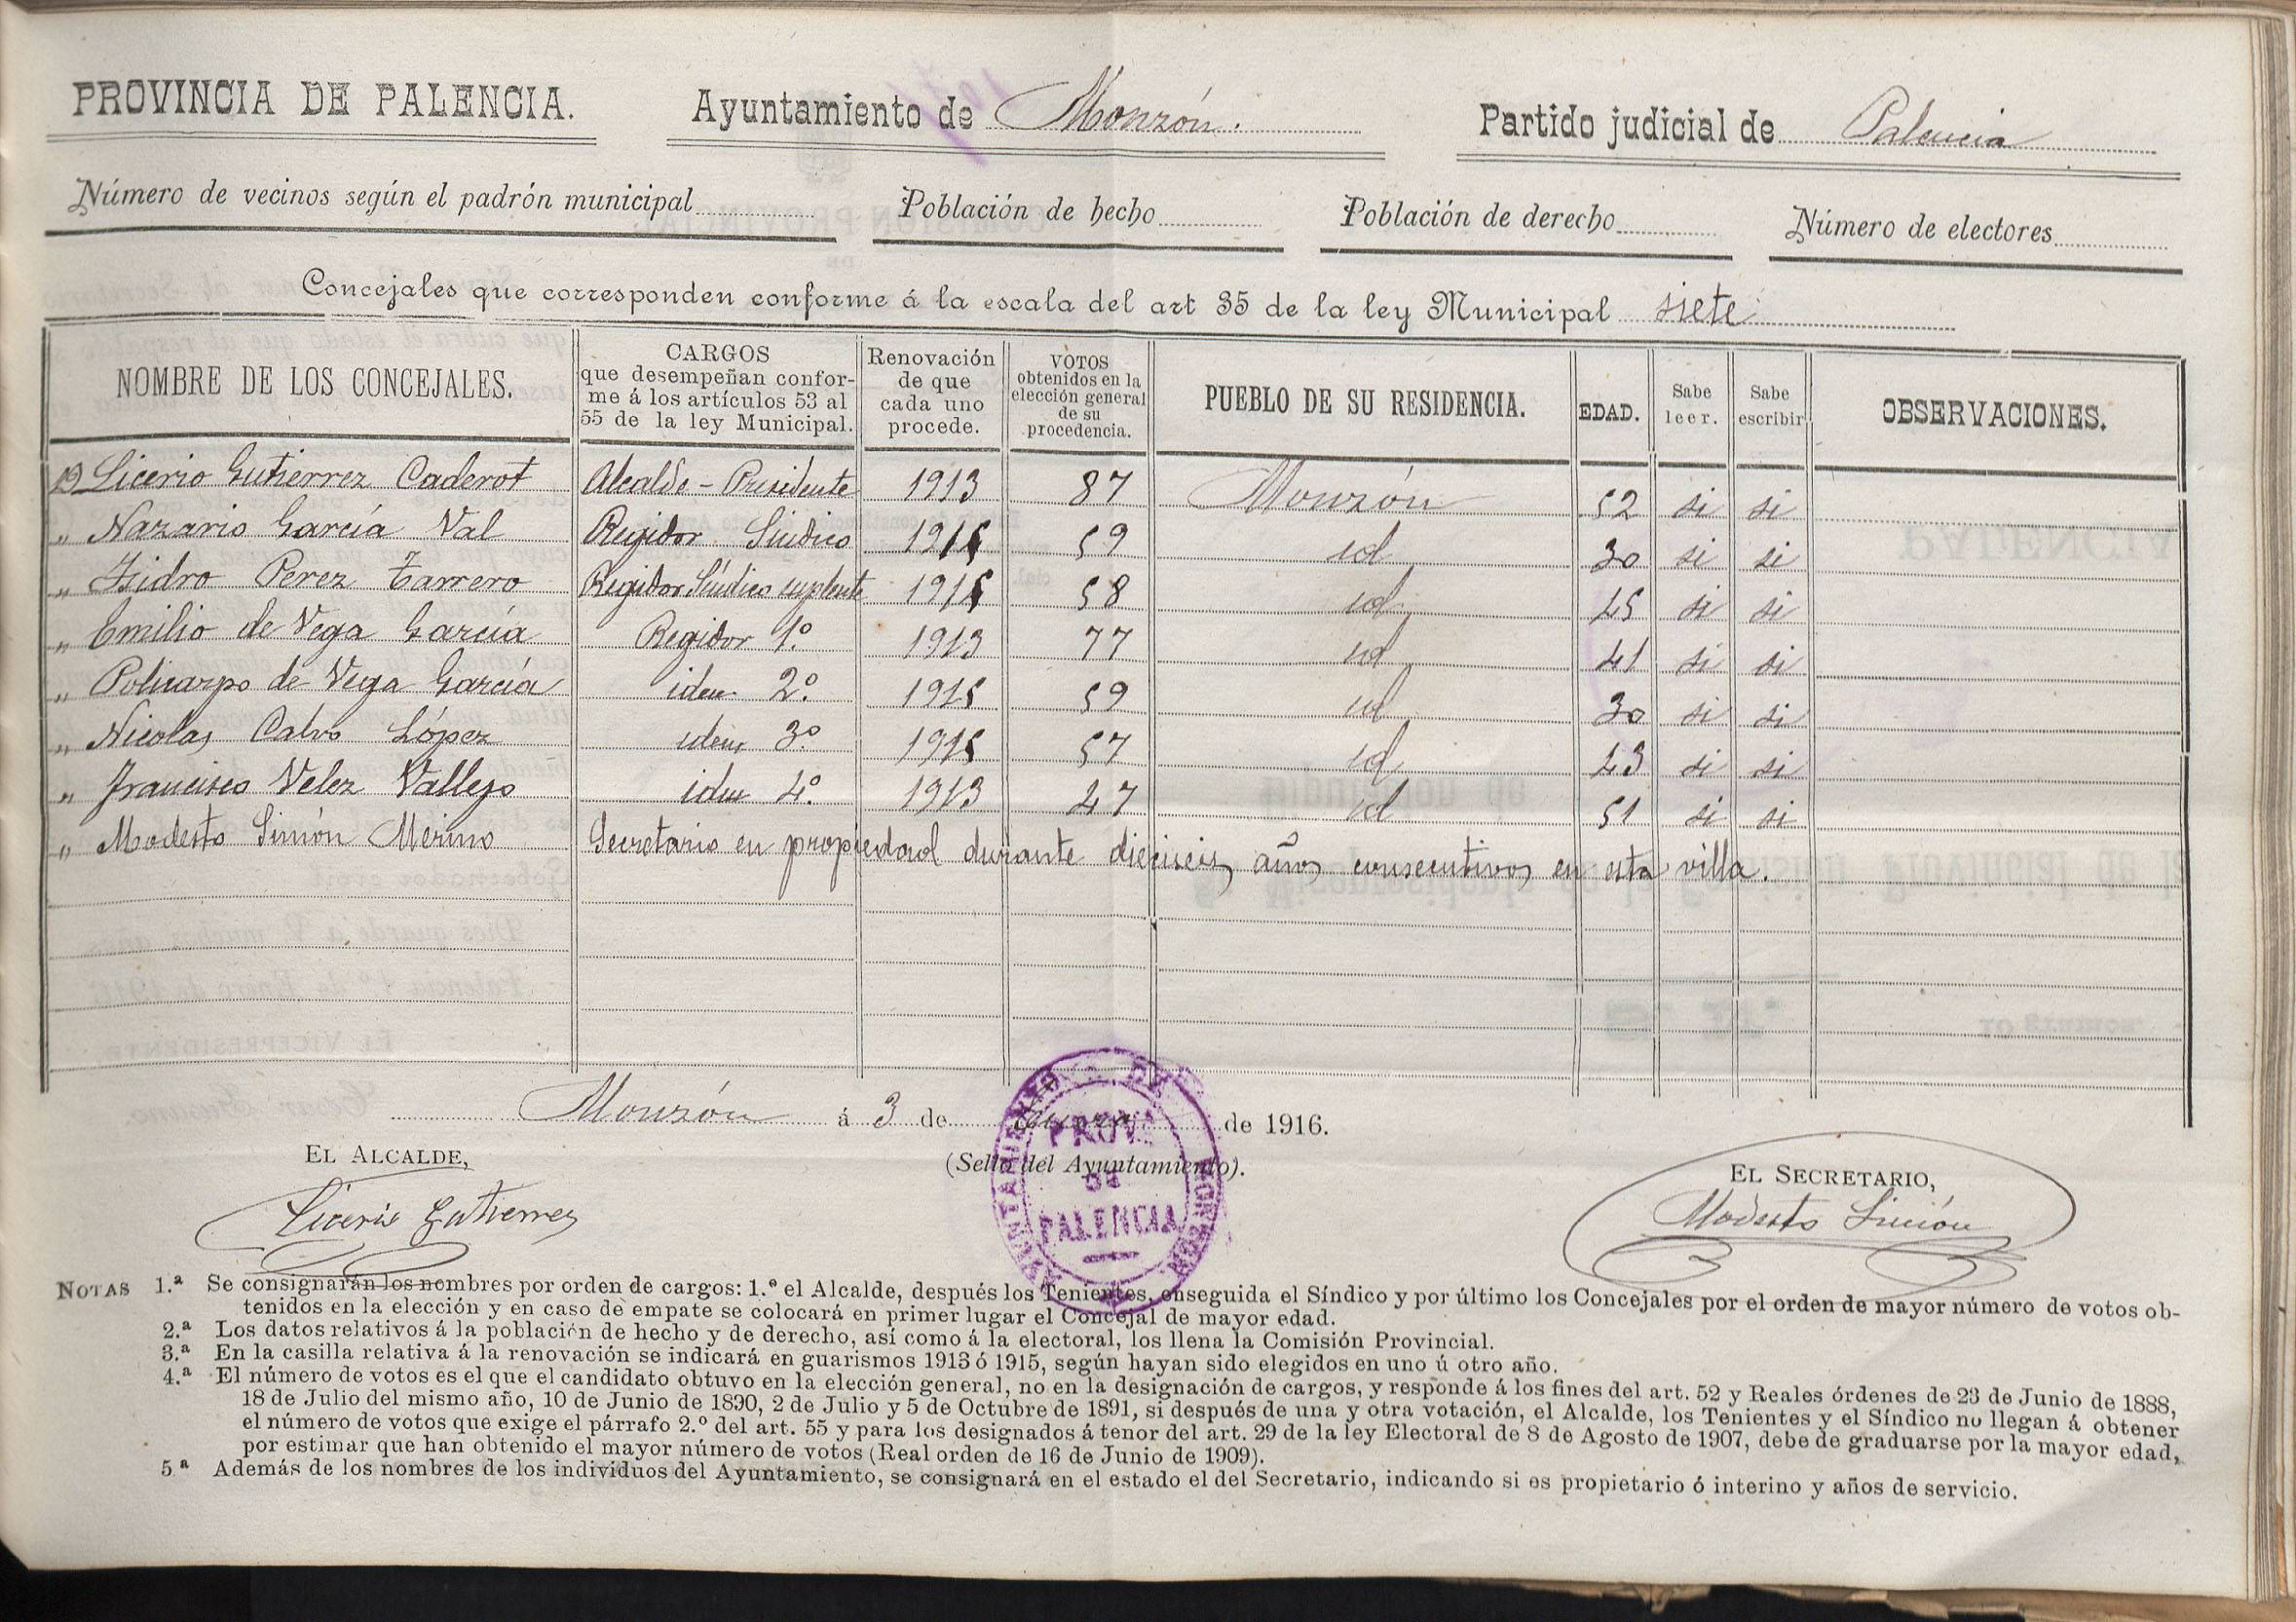 PROVINCIA DE PALENCIA. Ayuntamiento de Monzón. Partido judicial de Palencia
Número de vecinos según el padrón municipal Población de hecho Población de derecho Número de electores
Concejales que corresponden conforme á la escala del art 35 de la ley Municipal siete
NOMBRE DE LOS CONCEJALES. CARGOS que desempeñan conforme á los artículos 53 al 55 de la ley Municipal. Renovación de que cada uno procede. VOTOS obtenidos en la elección general de su procedencia. PUEBLO DE SU RESIDENCIA. EDAD. Sabe leer. Sabe escribir OBSERVACIONES.
D Licerio Gutierrez Caderot Alcalde - Presidente 1913 87 Monzón 52 si si
" Nazario García Val Regidor Síndico 1915 59 id 30 si si
" Isidro Perez Tarrero Regidor Síndico suplente 1915 58 id 45 si si
" Emilio de Vega García Regidor 1º 1913 77 id 41 si si
" Policarpo de Vega García idem 2º 1915 59 id 30 si si
" Nicolas Calvo López idem 3º 1915 57 id 43 si si
" Francisco Velez Vallejo idem 4º 1913 47 id 51 si si
" Modesto Simón Merino Secretario en propiedad durante dieciseis años consecutivos en esta villa.
Monzón á 3 de de 1916.
EL ALCALDE, (Sello del Ayuntamiento). EL SECRETARIO,
Licerio Gutierrez Modesto Simón
AYUNTAMIENTO DE MONZON
PROVª DE PALENCIA
NOTAS 1.ª Se consignarán los nombres por orden de cargos: 1.º el Alcalde, después los Tenientes, enseguida el Síndico y por último los Concejales por el orden de mayor número de votos ob-
tenidos en la elección y en caso de empate se colocará en primer lugar el Concejal de mayor edad.
2.ª Los datos relativos á la población de hecho y de derecho, así como á la electoral, los llena la Comisión Provincial.
3.ª En la casilla relativa á la renovación se indicará en guarismos 1913 ó 1915, según hayan sido elegidos en uno ú otro año.
4.ª El número de votos es el que el candidato obtuvo en la elección general, no en la designación de cargos, y responde á los fines del art. 52 y Reales órdenes de 23 de Junio de 1888,
18 de Julio del mismo año, 10 de Junio de 1890, 2 de Julio y 5 de Octubre de 1891, si después de una y otra votación, el Alcalde, los Tenientes y el Síndico no llegan á obtener
el número de votos que exige el párrafo 2.º del art. 55 y para los designados á tenor del art. 29 de la ley Electoral de 8 de Agosto de 1907, debe de graduarse por la mayor edad,
por estimar que han obtenido el mayor número de votos (Real orden de 16 de Junio de 1909).
5.ª Además de los nombres de los individuos del Ayuntamiento, se consignará en el estado el del Secretario, indicando si es propietario ó interino y años de servicio.